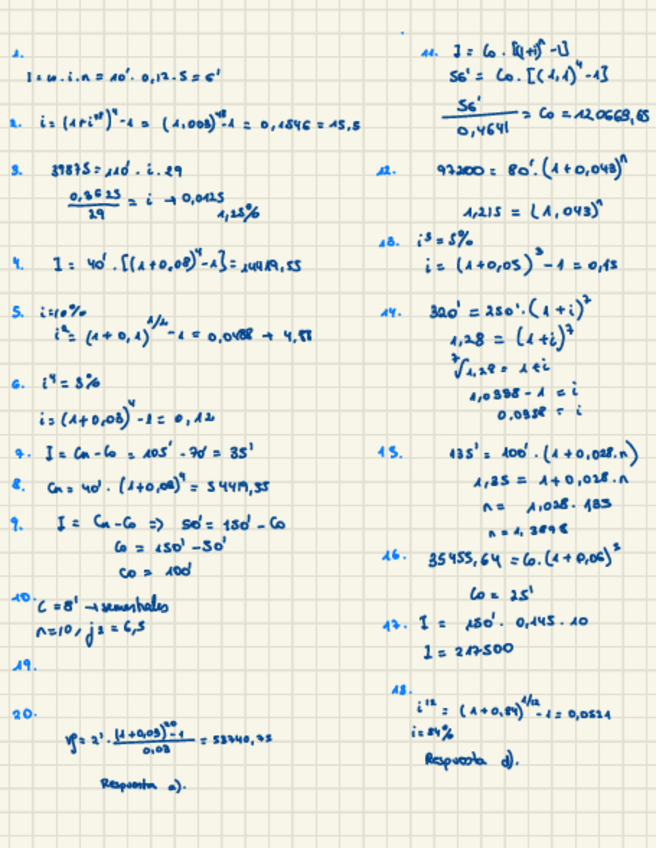 1.
I = Co.i.n = 10'. 0,12.5 = 6'
2. i = (1+i¹⁸)⁴-1 = (1,003)⁴⁸-1 = 0,1546 = 15,5
3. 39875 = 110'. i. 29
0,3625/29 = i → 0,0125
1,25%
4. I = 40'. [(1+0,08)⁴-1] = 14419,55
5. i=10%
i² = (1+0,1)^1/2 -1 = 0,0488 → 4,88
6. i⁴ = 3%
i = (1+0,03)⁴-1 = 0,12
7. I = Cn-Co = 105' - 70' = 35'
8. Cn = 40'. (1+0,08)⁴ = 54419,55
9. I = Cn-Co => 50' = 150' - Co
Co = 150' - 50'
Co = 100'
10. C = 8' → semestrales
n=10, j2 = 6,5
19.
20.
Vf = 2'. (1+0,03)²⁰-1/0,03 = 53740,75
Respuesta a).
11. I = Co. [(1+i)ⁿ-1]
56' = Co. [(1,1)⁴-1]
56'/0,4641 = Co = 120663,65
12. 97200 = 80'. (1+0,043)ⁿ
1,215 = (1,043)ⁿ
13. i³ = 5%
i = (1+0,05)³-1 = 0,15
14. 320' = 250'. (1+i)⁷
1,28 = (1+i)⁷
⁷√1,28 = 1+i
1,0358-1 = i
0.0358 = i
15. 135' = 100'. (1+0,028.n)
1,35 = 1+0,028.n
n = 1,028. 135
n = 1,3878
16. 35455,64 = Co. (1+0,06)²
Co = 25'
17. I = 150'. 0,145. 10
I = 217500
18.
i¹² = (1+0,84)^1/12 -1 = 0,0521
i=84%
Respuesta d).